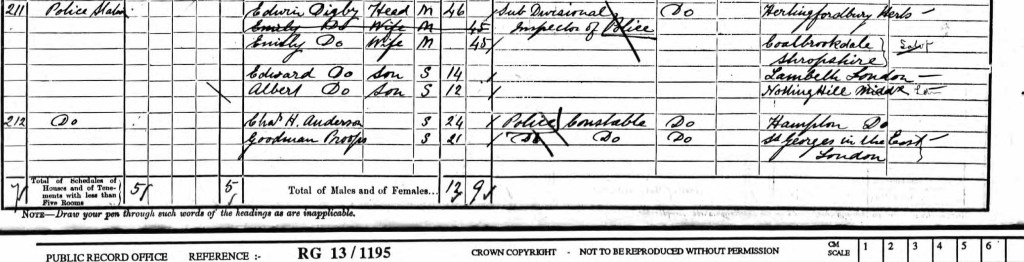 211 Police Station Edwin Digby Head M 46 Sub Divisional Do Hertingfordbury Herts
Emily Do Wife M 45 Inspector of Police
Emily Do Wife M 45 Coalbrookdale
Shropshire
Edward Do Son S 14 Lambeth London
Albert Do Son S 12 Notting Hill Middx
212 Do Chas H. Anderson S 24 Police Constable Do Hampton Do
Goodman Proops S 21 Do Do Do St Georges in the East
London
7 Total of Schedules of Houses and of Tenements with less than Five Rooms 5 5 Total of Males and of Females... 13 9
NOTE—Draw your pen through such words of the headings as are inapplicable.
PUBLIC RECORD OFFICE REFERENCE :- RG 13/1195 CROWN COPYRIGHT - NOT TO BE REPRODUCED WITHOUT PERMISSION CM SCALE 1 2 3 4 5 6